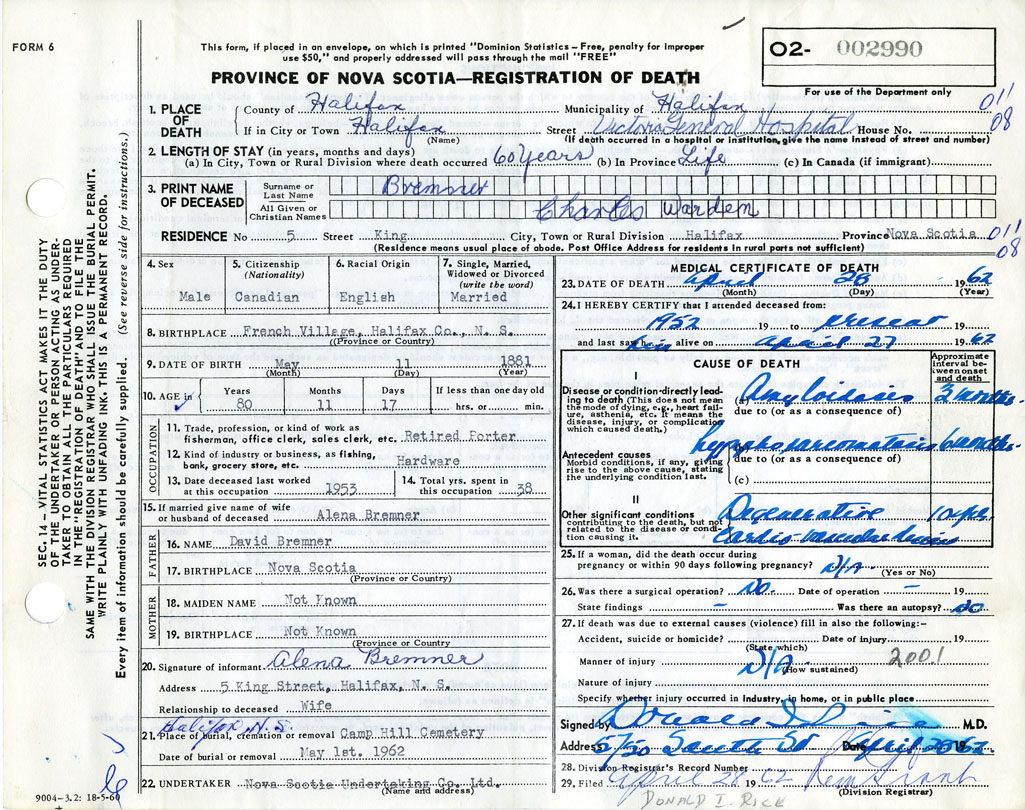 FORM 6
This form, if placed in an envelope, on which is printed "Dominion Statistics – Free, penalty for improper
use $50," and properly addressed will pass through the mail "FREE"
O2- 002990
PROVINCE OF NOVA SCOTIA—REGISTRATION OF DEATH
For use of the Department only
011
08
1. PLACE OF DEATH
County of Halifax Municipality of Halifax
If in City or Town Halifax Street Victoria General Hospital House No.
(Name) (If death occurred in a hospital or institution, give the name instead of street and number)
2. LENGTH OF STAY (in years, months and days)
(a) In City, Town or Rural Division where death occurred 60 Years (b) In Province Life (c) In Canada (if immigrant)
3. PRINT NAME OF DECEASED
Surname or Last Name Bremner
All Given or Christian Names Charles Warden
RESIDENCE No 5 Street King City, Town or Rural Division Halifax Province Nova Scotia
(Residence means usual place of abode. Post Office Address for residents in rural parts not sufficient)
011
08
4. Sex
Male
5. Citizenship
(Nationality)
Canadian
6. Racial Origin
English
7. Single, Married,
Widowed or Divorced
(write the word)
Married
8. BIRTHPLACE French Village, Halifax Co., N. S.
((Province or Country)
9. DATE OF BIRTH May 11 1881
(Month) (Day) (Year)
10. AGE in
Years Months Days If less than one day old
80 11 17 hrs. or min.
OCCUPATION
11. Trade, profession, or kind of work as
fisherman, office clerk, sales clerk, etc. Retired Porter
12. Kind of industry or business, as fishing,
bank, grocery store, etc. Hardware
13. Date deceased last worked
at this occupation 1953
14. Total yrs. spent in
this occupation 38
15. If married give name of wife
or husband of deceased Alena Bremner
FATHER
16. NAME David Bremner
17. BIRTHPLACE Nova Scotia
(Province or Country)
MOTHER
18. MAIDEN NAME Not Known
19. BIRTHPLACE Not Known
(Province or Country)
20. Signature of informant Alena Bremner
Address 5 King Street, Halifax, N. S.
Relationship to deceased Wife
Halifax N.S.
21. Place of burial, cremation or removal Camp Hill Cemetery
Date of burial or removal May 1st. 1962
22. UNDERTAKER Nova Scotia Undertaking Co., Ltd.
(Name and address)
9004-3.2: 18-5-60
MEDICAL CERTIFICATE OF DEATH
23. DATE OF DEATH April 28 1962
(Month) (Day) (Year)
24. I HEREBY CERTIFY that I attended deceased from:
1952 19 to present 19
and last saw him alive on April 27 1962
CAUSE OF DEATH
Approximate
interval between
onset
and death
I
Disease or condition directly leading
to death (This does not mean
the mode of dying, e.g., heart failure,
asthenia, etc. It means the
disease, injury, or complication
which caused death.)
(a) Amyloidosis 3 months
due to (or as a consequence of)
Antecedent causes
Morbid conditions, if any, giving
rise to the above cause, stating
the underlying condition last.
6 months
due to (or as a consequence of)
(c)
II
Other significant conditions
contributing to the death, but not
related to the disease or condition
causing it.
Degenerative 10 yrs.
cardio-vascular
25. If a woman, did the death occur during
pregnancy or within 90 days following pregnancy? N/A
(Yes or No)
26. Was there a surgical operation? No. Date of operation –
State findings – Was there an autopsy? No
27. If death was due to external causes (violence) fill in also the following:–
Accident, suicide or homicide? Date of injury 19
(State which)
Manner of injury N/A 200.1
(How sustained)
Nature of injury
Specify whether injury occurred in Industry, in home, or in public place
Signed by Donald I. M.D.
Address South St Date April 1962
28. Division Registrar's Record Number
29. Filed April 28 1962
(Division Registrar)
DONALD I. RICE
SEC. 14 — VITAL STATISTICS ACT MAKES IT THE DUTY
OF THE UNDERTAKER OR PERSON ACTING AS UNDERTAKER
TO OBTAIN ALL THE PARTICULARS REQUIRED
IN THE "REGISTRATION OF DEATH" AND TO FILE THE
SAME WITH THE DIVISION REGISTRAR WHO SHALL ISSUE THE BURIAL PERMIT.
WRITE PLAINLY WITH UNFADING INK. THIS IS A PERMANENT RECORD.
Every item of information should be carefully supplied. (See reverse side for instructions.)